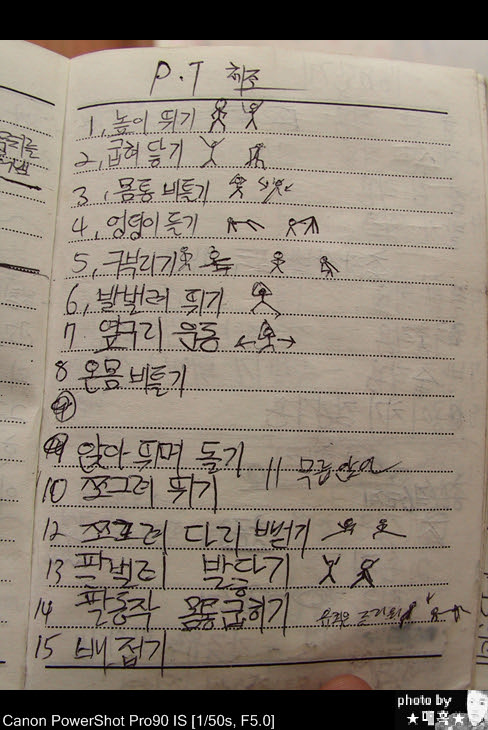 P.T 체조
1, 높이 뛰기
2, 굽혀 닿기
3, 몸통 비틀기
4, 엉덩이 들기
5, 구부리기
6, 발벌려 뛰기
7 옆구리 운동
8 온몸 비틀기
9
9 앉아 뛰며 돌기
10 쪼그려 뛰기 11 무릎
12 쪼그려 다리 뻗기
13 팔벌려
14 팔동작 몸통굽히기
15 배 접기
photo by
★매혹★
Canon PowerShot Pro90 IS [1/50s, F5.0]